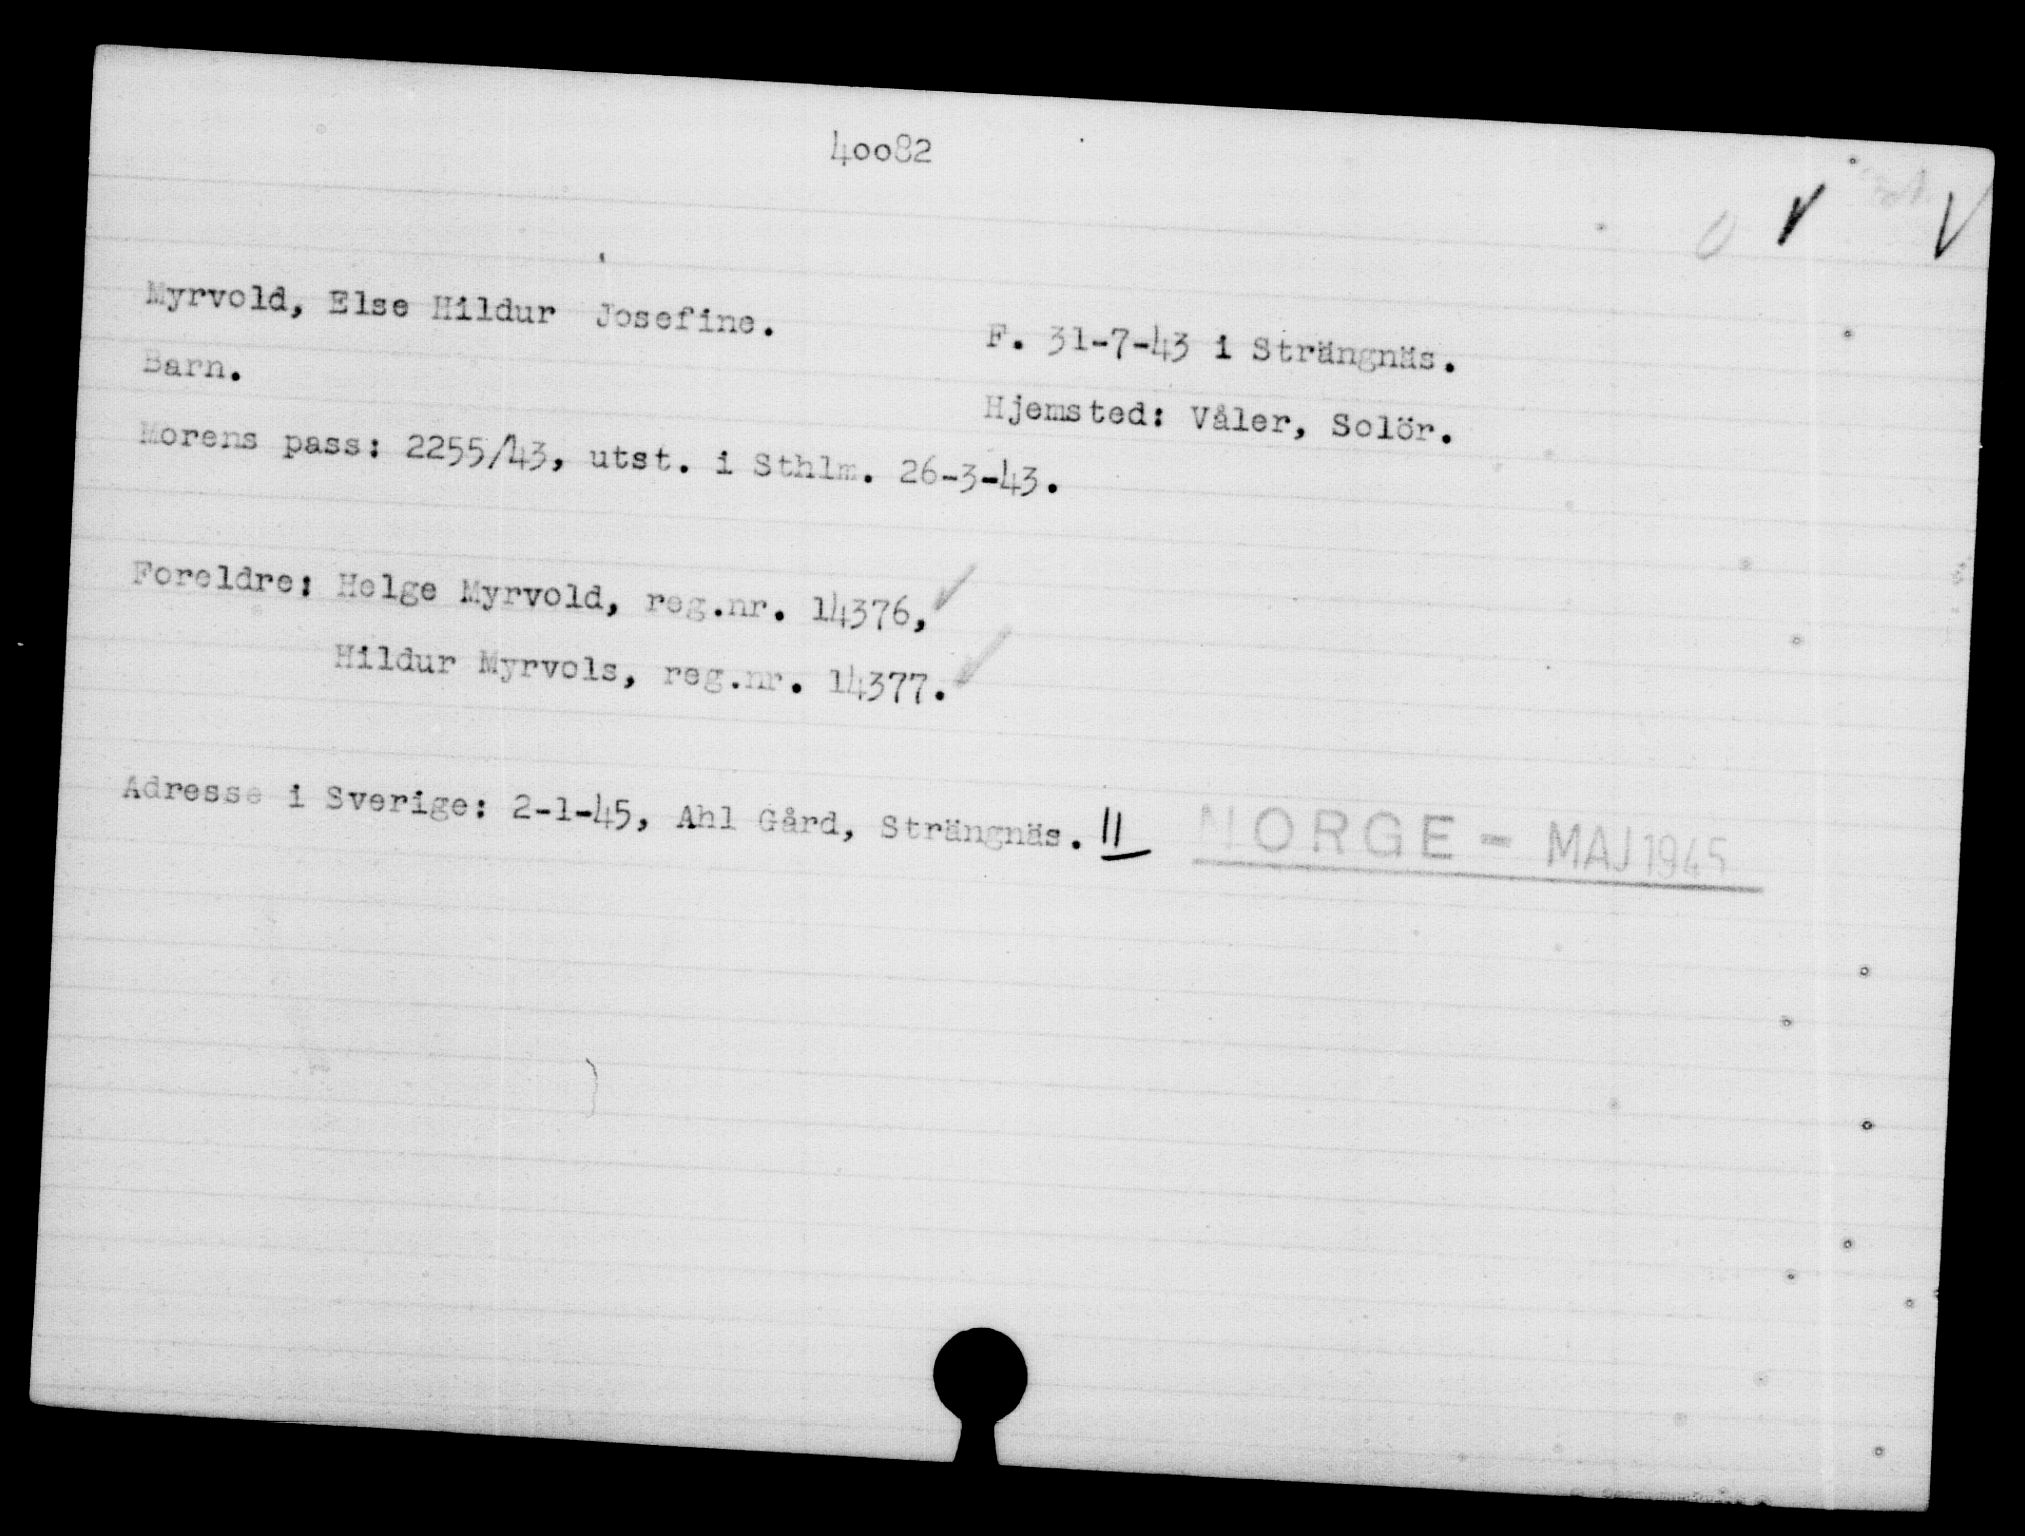 40082
Myrvold, Else Hildur Josefine.
F. 31-7-43 i Strängnäs.
Barn.
Hjemsted: Våler, Solör.
Morens pass: 2255/43, utst. i Sthlm. 26-3-43.
Foreldre: Helge Myrvold, reg.nr. 14376,
Hildur Myrvols, reg.nr. 14377.
Adresse i Sverige: 2-1-45, Ahl Gård, Strängnäs. II NORGE - MAJ 1945